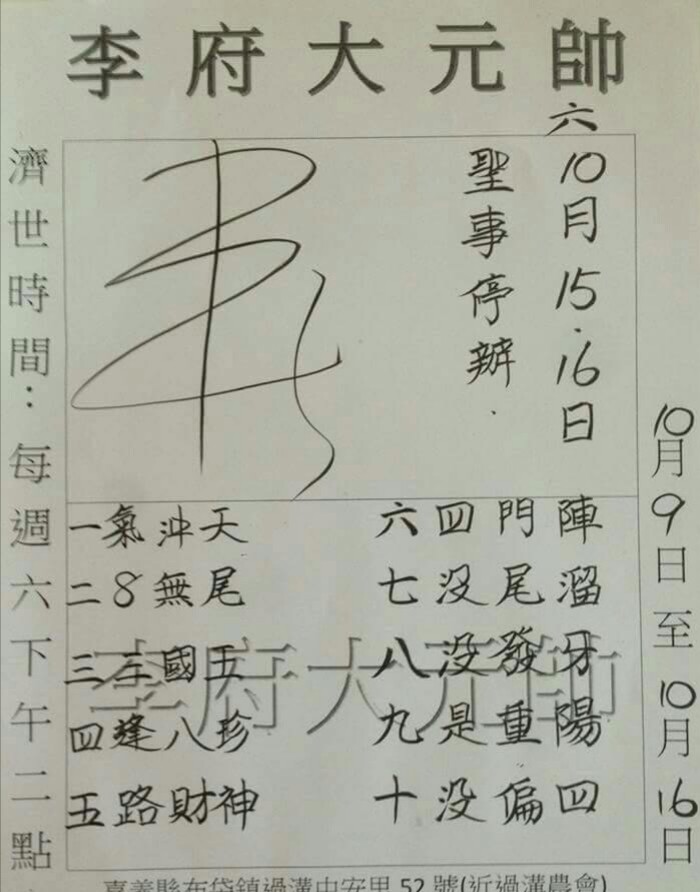 李府大元帥
六
10月15.16日
聖事停辦.
10月9日至10月16日
濟世時間：每週六下午二點
一氣沖天
二8無尾
三三國五
四逢八珍
五路財神
六四門陣
七没尾溜
八没發牙
九是重陽
十没偏四
李府大元帥
嘉義縣布袋鎮過溝中安里 52 號(近過溝農會)